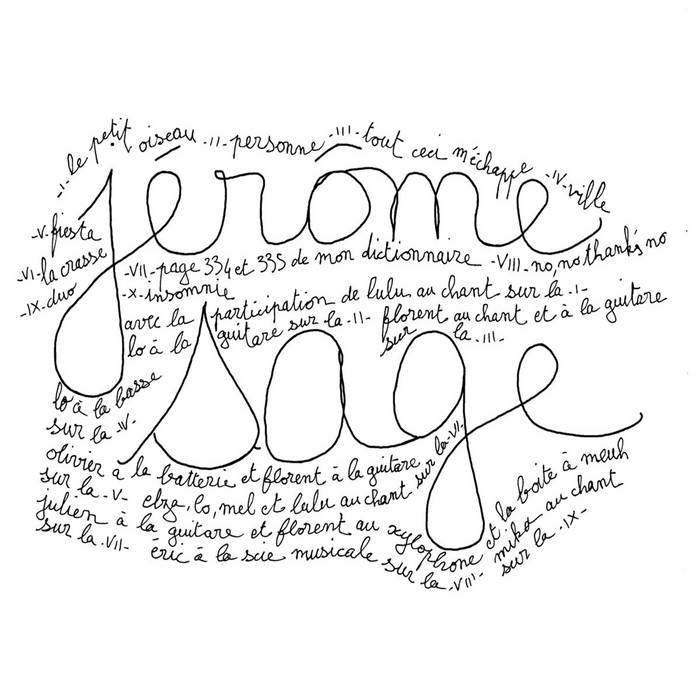 -I- le petit oiseau -II- personne -III- tout ceci m'échappe -IV- ville
jérôme
-V- fiesta
-VI- la crasse
-VII- page 334 et 335 de mon dictionnaire -VIII- no, no thank's no
-IX- duo
-X- insomnie
avec la participation de lulu au chant sur la -I-
lo à la guitare sur la -II- florent au chant et à la guitare
sur la -III-
sage
lo à la basse
sur la -V-
olivier à la batterie et florent à la guitare sur la -VI-
sur la -V- elza, lo, mel et lulu au chant
julien à la guitare et florent au xylophone et la boite à meuh
sur la -VII- éric à la scie musicale sur la -VIII- mika au chant
sur la -IX-